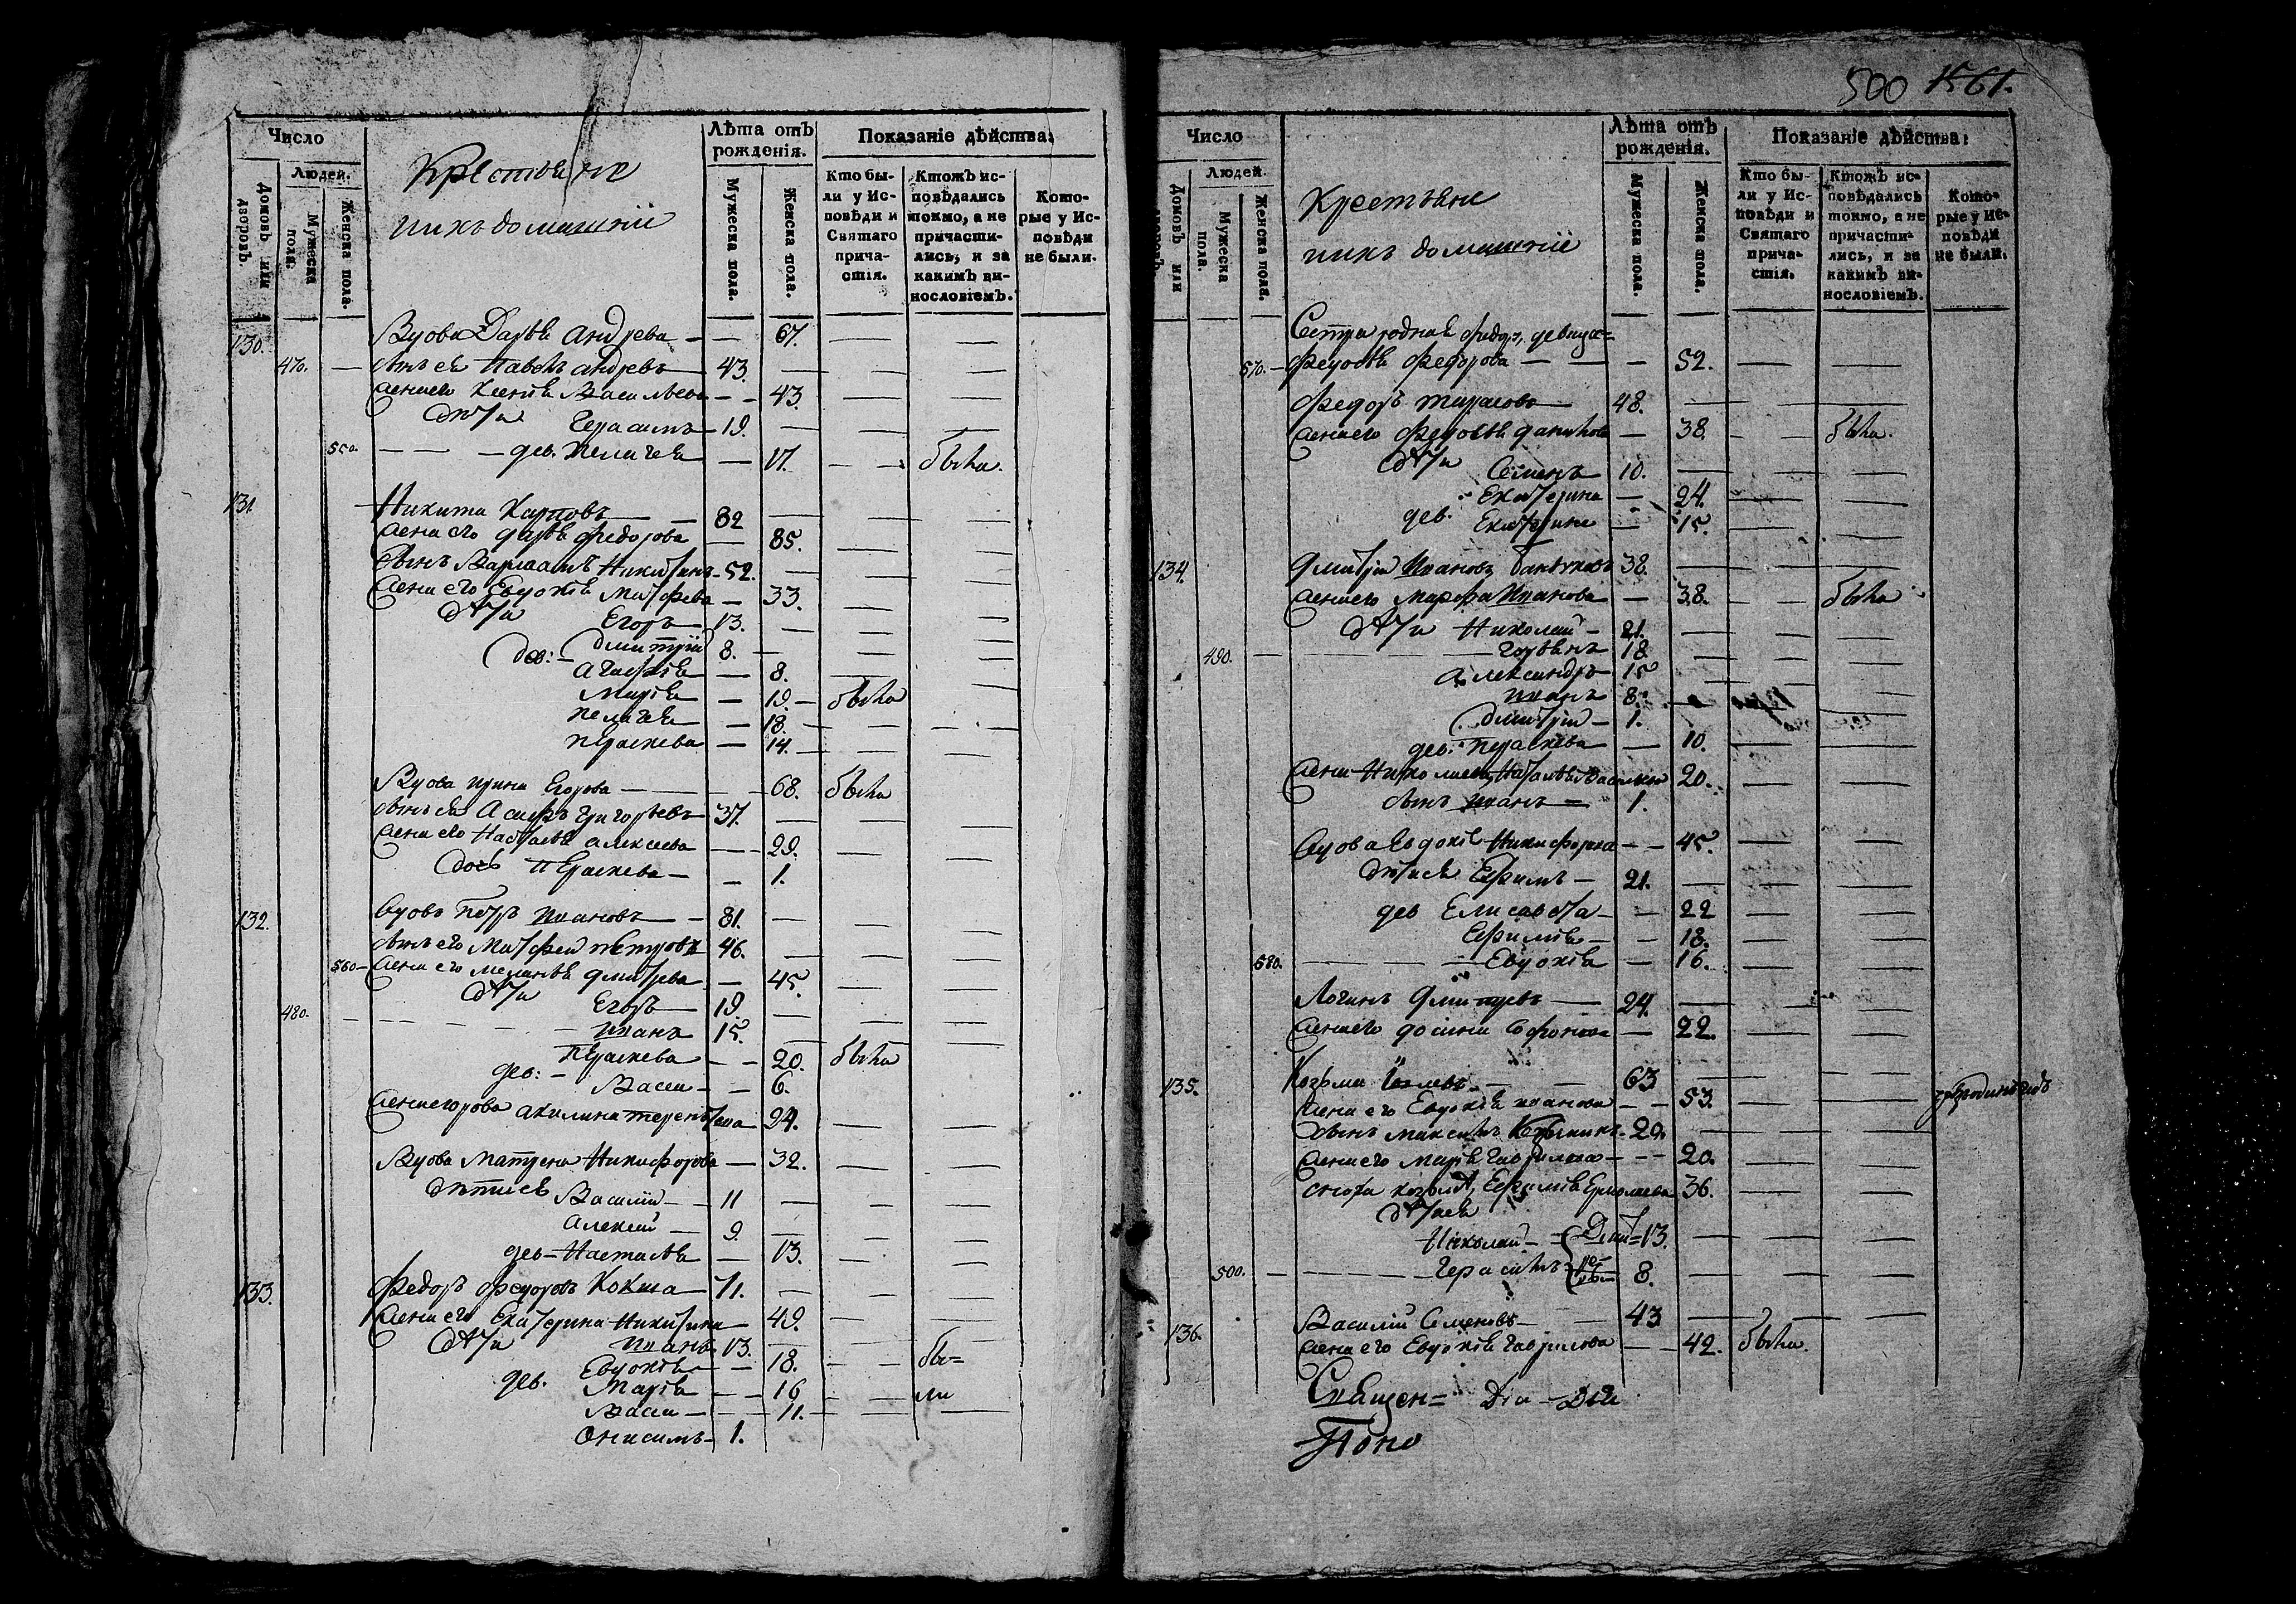 Число
Людей.
Домовъ или дворовъ.
Мужеска пола.
Женска пола.
Крестьяне
ихъ домашніе
Лѣта отъ рожденія.
Мужеска пола.
Женска пола.
Показаніе дѣйства:
Кто бы-
ли у Ис-
повѣди и
Святаго
прича-
стія.
Ктожъ ис-
повѣдались
токмо, а не
причасти-
лись, и за
какимъ ви-
нословіемъ.
Кото-
рые у Ис-
повѣди
не были.
130. Вдова Дарья Андреева — — 67.
470. — сынъ ея Павелъ Андреевъ — 43.
жена его Ксенія Васильева — — 43.
дѣти Герасимъ — 19.
550. — — дев. Пелагея — 17. — — была.
131. Никита Карповъ — 82
жена его Дарья Федорова — 85.
сынъ Варлаамъ Никитинъ — 52.
жена его Евдокія Матфева — 33.
дѣти Егоръ — 13.
Дмитрій 8.
дев: Агафія — 8.
Марія — 19. — была
Пелагея — 18.
Параскева — 14.
Вдова Ирина Егорова — 68. была
сынъ ея Асафъ Григорьевъ 37.
жена его Наталья Алексеева — 29.
дочь Параскева — 1.
132. Вдовъ Петръ Ивановъ — 81.
сынъ его Матфей Петровъ 46.
560 — жена его Меланья Дмитрева — 45.
дѣти Егоръ — 19.
480. — Иванъ 15.
дев: — Параскева — 20. была
Васса — 6.
жена Егорова Акилина Терентьева 24.
Вдова Матрена Никифорова — 32.
дѣти ея Василій — 11
Алексей — 9.
дев — Настасья — 13.
133. Федоръ Федоровъ Кокша — 71.
жена его Екатерина Никитина 49.
дѣти Иванъ 13.
дев. Евдокія — 18. — — бы=
Марія — 16 — — ли
Васса — 11.
Онисимъ — 1.
500 1561.
Число
Людей.
Домовъ или дворовъ.
Мужеска пола.
Женска пола.
Крестьяне
ихъ домашніе
Лѣта отъ рожденія.
Мужеска пола.
Женска пола.
Показаніе дѣйства:
Кто бы-
ли у Ис-
повѣди и
Святаго
прича-
стія.
Ктожъ ис-
повѣдались
токмо, а не
причасти-
лись, и за
какимъ ви-
нословіемъ.
Кото-
рые у Ис-
повѣди
не были.
Сестра родная Федор, девица=
570. — Федосья Федорова — 52.
Федоръ Тарасовъ — 48.
жена его Федосья Данилова — 38. — — была.
дѣти Семенъ 10.
Екатерина — 24.
дев. Екатерина — 15.
134. Дмитрій Ивановъ 38.
жена его Марфа Иванова — 38. — — была
дѣти Николай — 21.
490. — 18
Александръ 15
Иванъ 8.
Дмитрій — 1.
дев: Параскева — 10.
жена Николаева Наталья Васильева 20.
сынъ Иванъ — 1.
Вдова Евдокія Никифорова — — 45.
дѣти ея Ефимъ — 21.
дев Елисавета — 22
Ефимія — 18.
580. — Евдокія — 16.
Логинъ Дмитревъ — 24.
жена его Софронова — 22.
135. Козьма — 63
жена его Евдокія Иванова — — 53.
сынъ Максимъ Козьминъ. 20.
жена его Марья Гаврилова — 20.
сноха Ефимія Ермолаева 36.
дѣти ея
Николай — 13.
500. — Герасимъ 8.
136. Василій Семеновъ — 43
жена его Евдокія Гаврилова — — 42. была.
Священ=
Поно